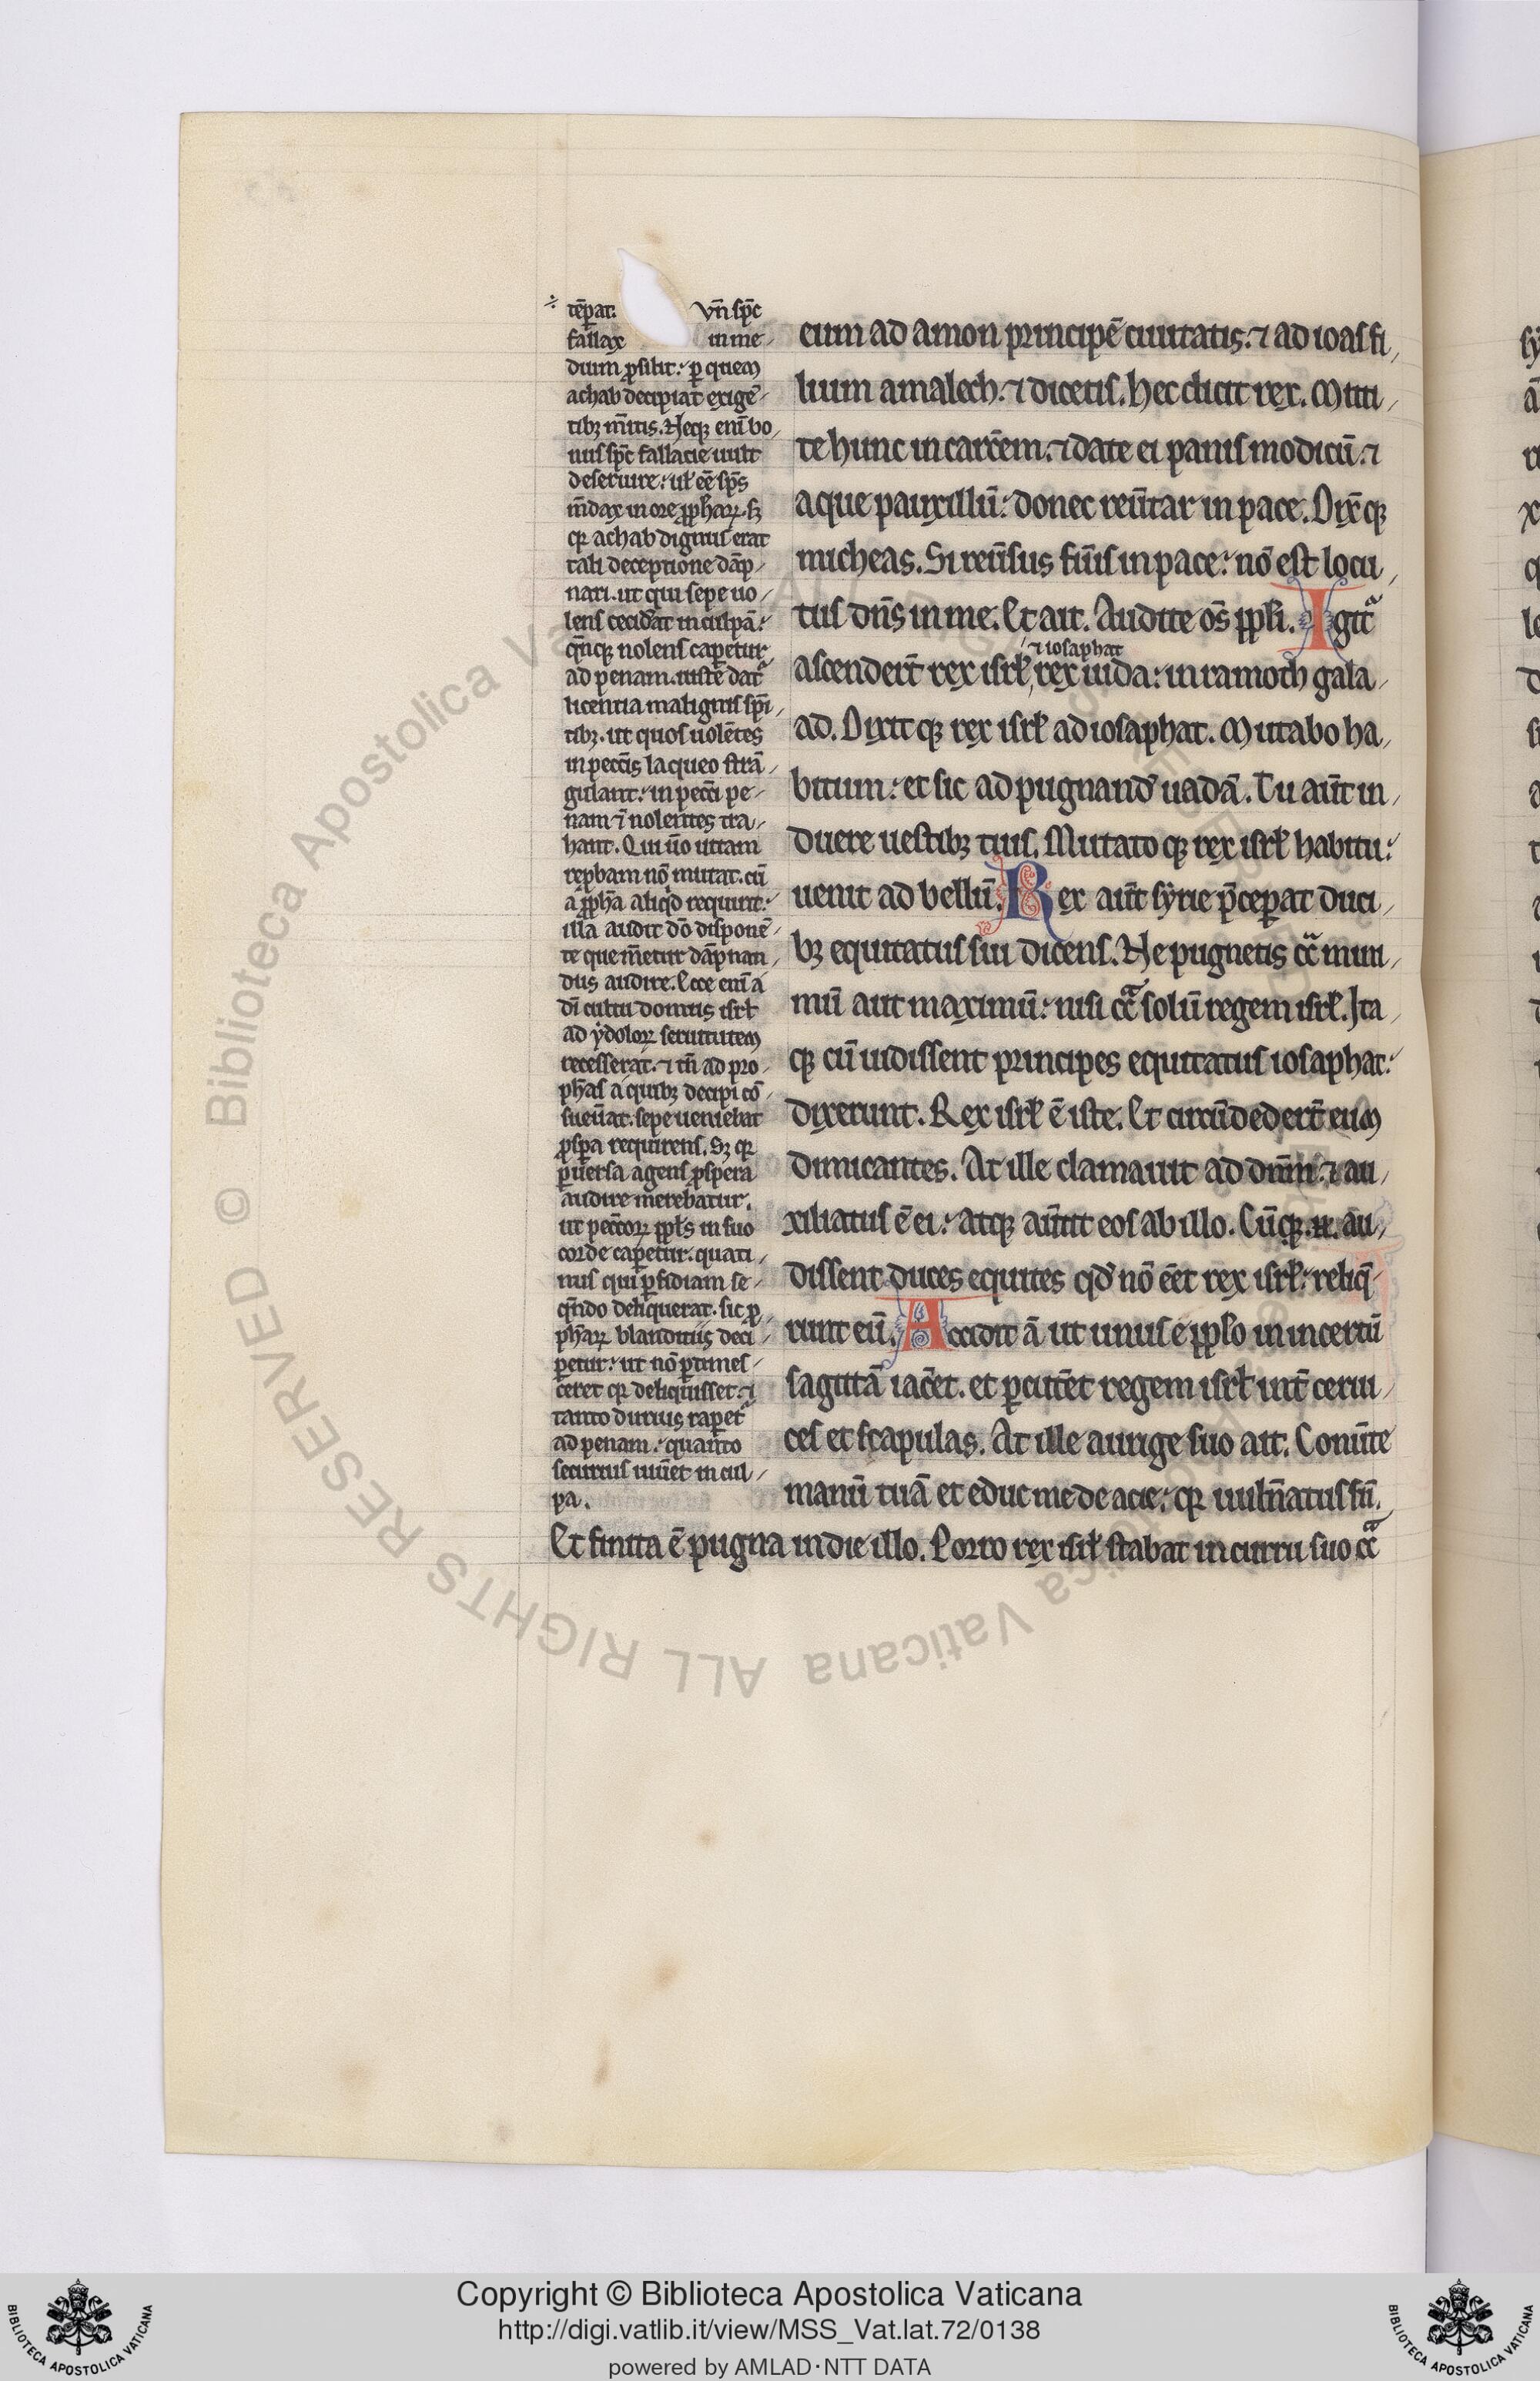 ÷ tēp̄at. vn̄ sp̄c
fallax in me-
dium ꝓsiliit: ꝑ quem
achab decipiat̄ exigē-
tibꝫ m̄itis. Neqꝫ enī bo-
nus sp̄c fallacie uult
deseruire: ut eē sp̄s
m̄dax in ore ꝓpharꝝ. sꝫ
qꝛ achab dignus erat
tali deceptione dāp-
nari. ut qui sepe uo-
lens cecid̄at in culpā:
qn̄cꝫ nolens caꝑetur
ad penam. iuste dat᷑
licentia malignis sp̄i-
tibꝫ. ut quos uolētes
in pecc̄is laqueo strā-
gulant: in pecc̄i pe-
nam ī nolentes tra-
hant. Qui ūo uitam
reꝓbam nō mutat. cū
a ꝓph̄a aliqd̄ requirit:
illa audit dō disponē-
te que m̄etur dāpnan-
dus audire. Ecce enī a
dī cultu domus isrł
ad ẏdolorꝝ seruitutem
recesserat: ⁊ tn̄ ad pro-
ph̄as a quibꝫ decipi cō-
sueūat. sepe ueniebat
ꝓspa requirens. Sꝫ qꝛ
ꝑuersa agens ꝓspera
audire merebatur.
ut pecc̄orꝝ ꝓpł̄s in suo
corde caꝑetur: quati-
nus qui ꝑfidiam se-
qn̄do deliquerat. sic ꝓ-
pharꝝ blanditiis deci-
ꝑetur: ut nō ꝑtimes-
ceret qꝛ deliquisset: ⁊
tanto durius raꝑet᷑
ad penam: quanto
securius uiūet in cul-
pa.
eum ad amon principē ciuitatis: ⁊ ad ioas fi-
lium amalech. ⁊ dicetis. hec dicit rex. Miti-
te hunc in carc̄em: ⁊ date ei panis modicū. ⁊
aque pauxillū: donec reūtar in pace. Dix̄qꝫ
micheas. Si reūsus fūis in pace: nō est locu-
tus dn̄s in me. Et ait. Audite os̄ ppłi. Igit᷑
ascender̄t rex isrł, rex iuda: in ramoth gala-
⁊ iosaphat
ad. Dixit qꝫ rex isrł ad iosaphat. Mutabo ha-
bitum: et sic ad pugnand̄ uadā. Tu aūt in-
duere uestibꝫ tuis. Mutato qꝫ rex isrł habitu:
uenit ad bellū. Rex aūt sẏrie p̄ceꝑat duci-
bꝫ equitatus sui dicens. Ne pugnetis cc̄ᵃ mini-
mū aut maximū: nisi cc̄ᵃ solū regem isrł. Ita-
qꝫ cū uidissent principes equitatus iosaphat:
dixerunt. Rex isrł ē iste. Et circūdeder̄t eum
dimicantes. At ille clamauit ad dn̄m: ⁊ au-
xiliatus ē ei: atqꝫ aūtit eos ab illo. Cūqꝫ .n. au-
dissent duces equites qd̄ nō eēt rex isrł: reliq̄-
runt eū. Accidit ā ut unus e pplo in incertū
sagittā iac̄et. et ꝑcutēt regem isrł int̄ cerui-
ces et scapulas. At ille aurige suo ait. Conūte
manū tuā et educ me de acie: qꝛ uuln̄atus sū.
Et finita ē pugna in die illo. Porro rex isrł stabat in curru suo cc̄ᵃ
© Biblioteca Apostolica Vaticana ALL RIGHTS RESERVED
Copyright © Biblioteca Apostolica Vaticana
http://digi.vatlib.it/view/MSS_Vat.lat.72/0138
powered by AMLAD·NTT DATA
BIBLIOTECA APOSTOLICA VATICANA
BIBLIOTECA APOSTOLICA VATICANA